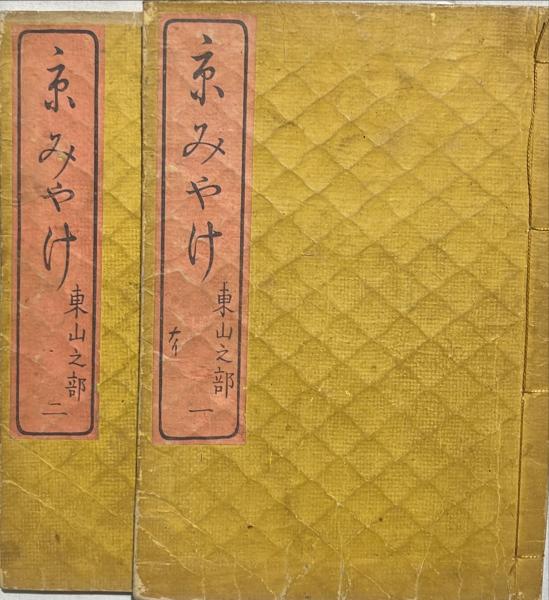 京みやけ
東山之部
一
京みやけ
東山之部
二